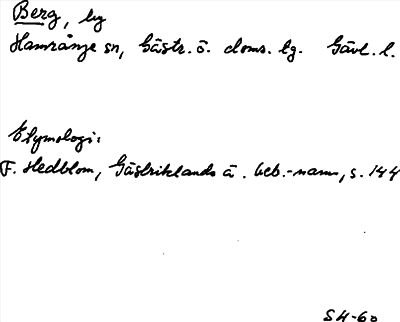 Berg, by
Hamrånge sn, Gästr. ö. doms. tg. Gävl. l.
Etymologi:
F. Hedblom, Gästriklands ä. beb.-namn, s. 144
SH-60